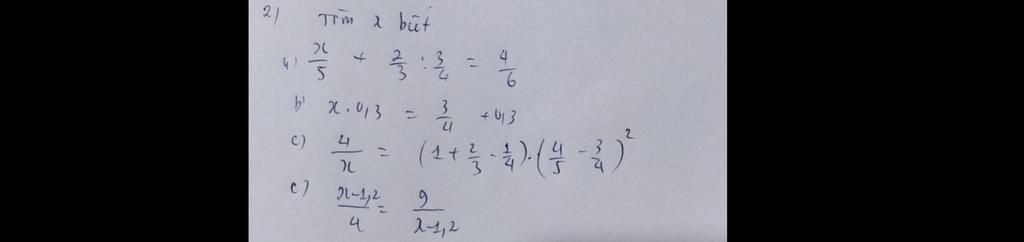 2) Tìm x biết
a) x/5 + 2/3 : 3/4 = 4/6
b) x . 0,3 = 3/4 + 0,3
c) 4/x = (1 + 2/3 - 1/4) . (4/5 - 3/4)²
c) x-1,2/4 = 9/x-1,2